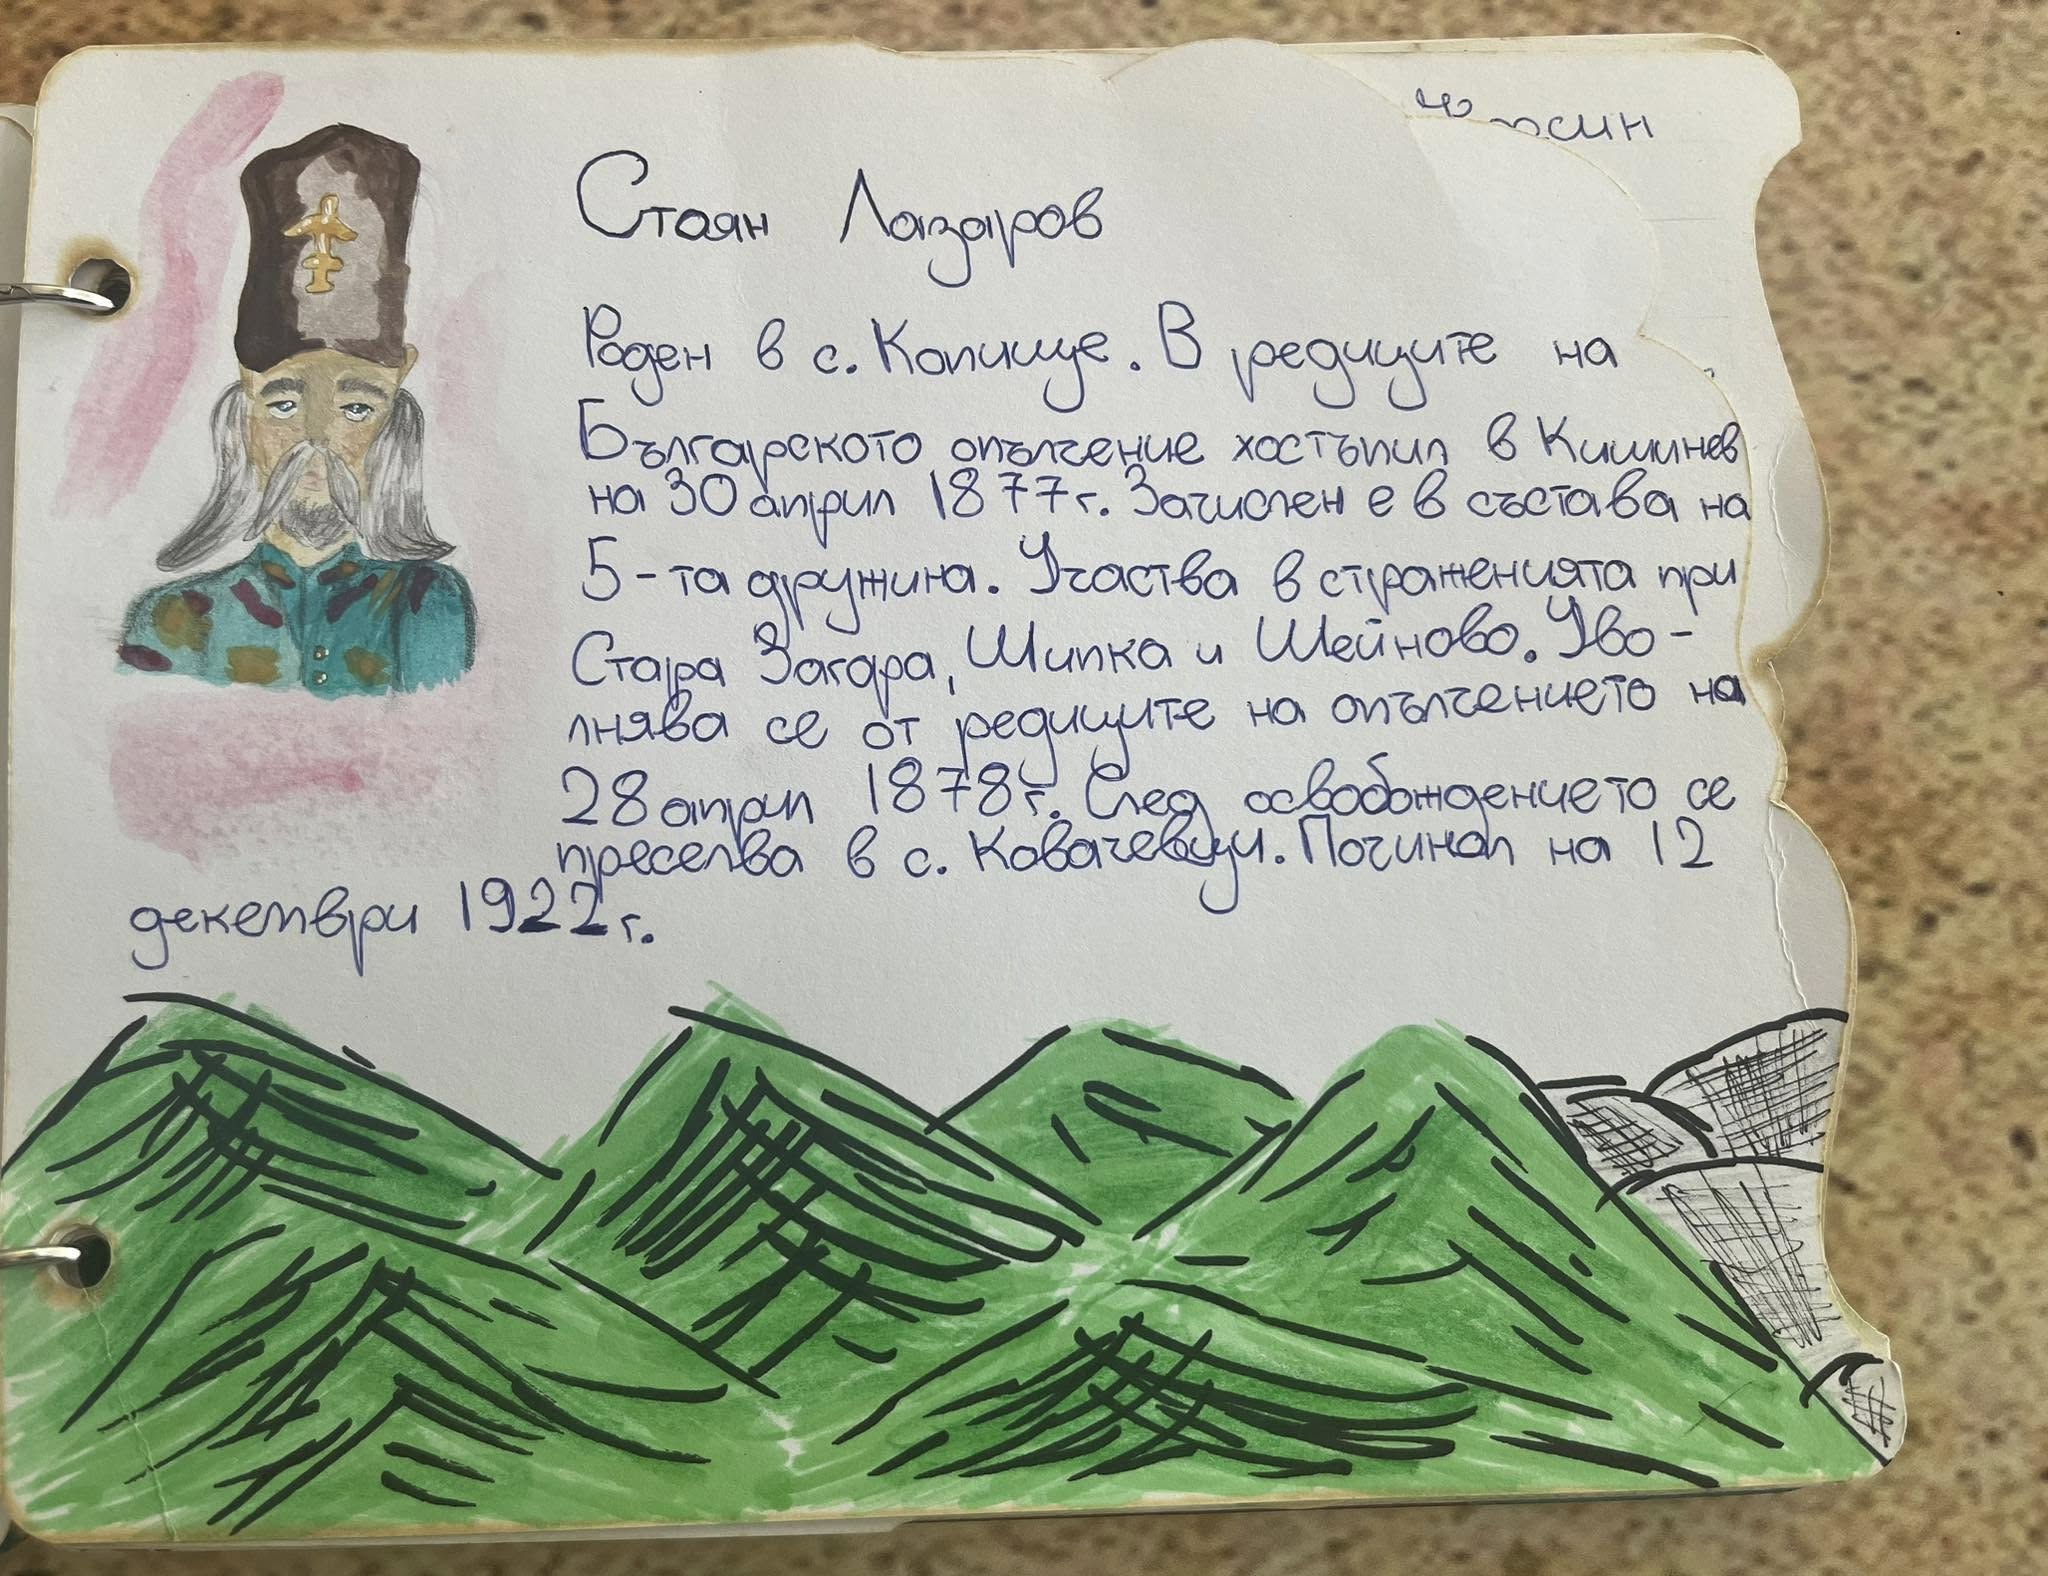 Стоян Лазаров
Роден в с. Копище. В редиците на
Българското опълчение хостъпил в Кишинев
на 30 април 1877г. Зачислен е в състава на
5-та дружина. Участва в страженията при
Стара Загара, Шипка и Шейново. Уво-
лнява се от редиците на опълчението на
28 април 1878г. След освобождението се
преселва в с. Ковачевци. Починал на 12
декември 1922г.